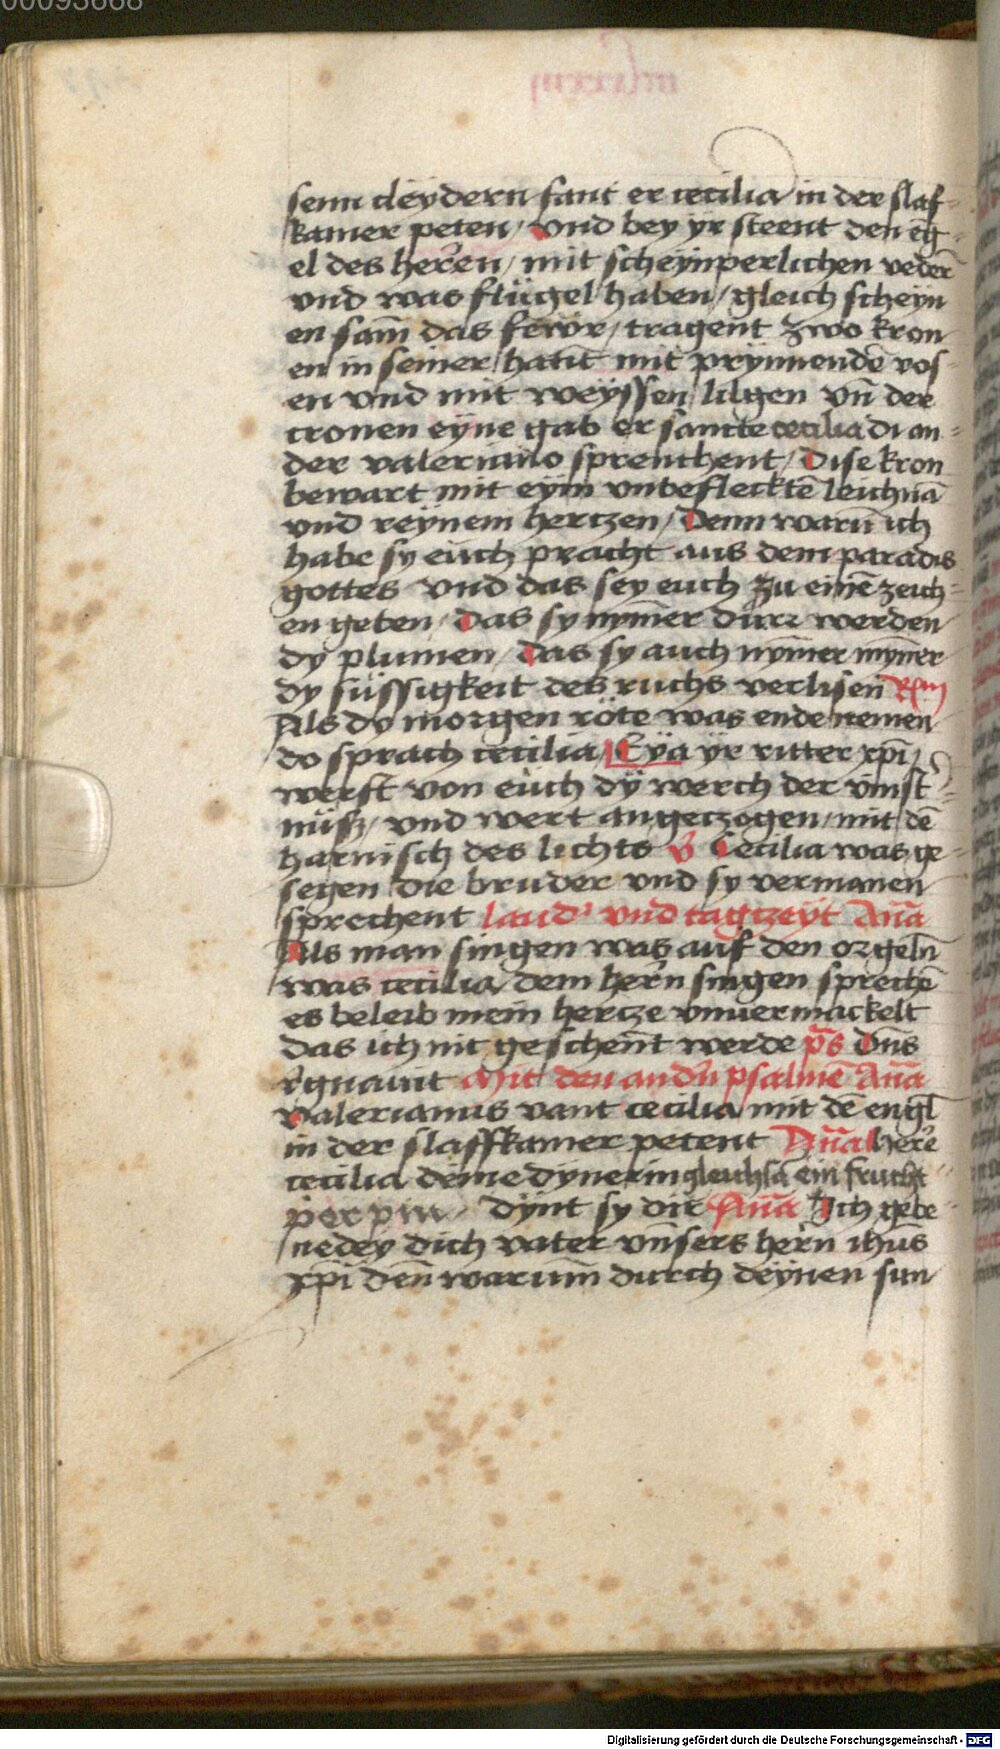 00093668
senn cleÿdern fant er cecilia in der slaf-
kamer peten / vnd bey yr steent den eng-
el des herren / mit scheynperlichen vederñ
vnd was flügel haben / gleich scheyn
en sam̄ das fewr / tragent zwo kron
en in seiner hant mit prynnendē ros-
en vnd mit weÿssen lilgen vn̄ der
cronen eÿne gab er sancte cecilia di an-
der valeriano sprenchent / Dise kron
bewart mit eym vnbeflecktē leichnā
vnd reÿnem hertzen / Denn warū ich
habe sy euch pracht aus dem paradis
gottes vnd das sey euch zu einē zeich-
en geben / Das sy nym̄er dürr werden
dy plumen / Das sy auch nym̄er myn̄er
dy süssigkeit des ruchs verlisen
Als dy morgen röte was ende nemen
do sprach cecilia Eÿa yr ritter xp̄i /
werft von eüch dÿ werch der vinst-
nüß / vnd wert angetzogen / mit dē
harnisch des lichts v̄ Cecilia was ge-
segen die bruder vnd sy vermanen
sprechent laud' vnd tagtzeÿt Añā
Als man singen was auf den orgeln̄
was cecilia dem hern̄ singen sprechē
es beleib mein hertze vnuermackelt
das ich nit geschent werde p̄s Dn̄s
rēgnauit Mit den and'n psalmē Añā
Valerianus vant cecilia mit dē engl̄
in der slaffkamer petent Añā here
cecilia deine dynerin gleichsā ein frucht
per pin dÿnt sy dir Añā Ich gebe
nedey dich vater vn̄sers hern̄ ihūs
xp̄i den̄ warum̄ durch deÿnen sun
Digitalisierung gefördert durch die Deutsche Forschungsgemeinschaft - DFG